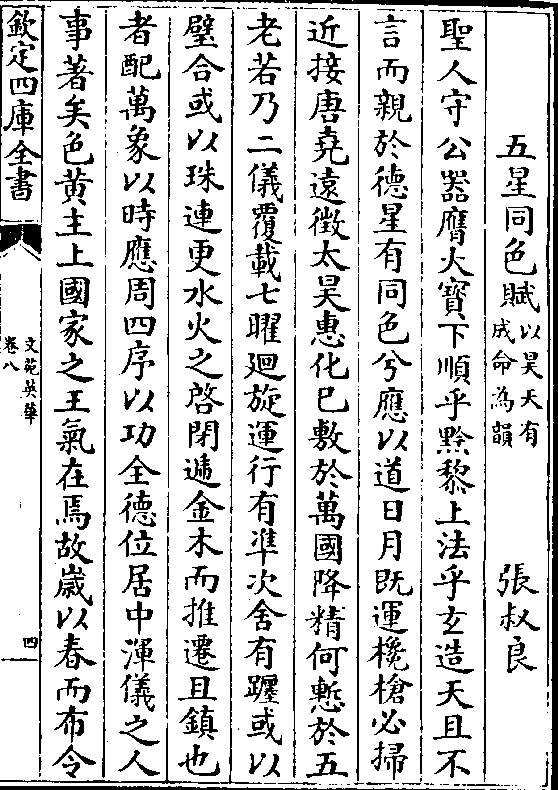 五星同色賦以昊天有成命為韻 張叔良
聖人守公器膺大寶下順乎黔黎上法乎玄造天且不
言而親於德星有同色兮應以道日月既運欃槍必掃
近接唐堯遠徵太昊惠化已敷於萬國降精何慙於五
老若乃二儀覆載七曜廻旋運行有準次舍有躔或以
璧合或以珠連更水火之啓閉遞金木而推遷且鎮也
者配萬象以時應周四序以功全德位居中渾儀之人
事著矣色黄主上國家之王氣在焉故嵗以春而布令
欽定四庫全書
文苑英華
卷八
四